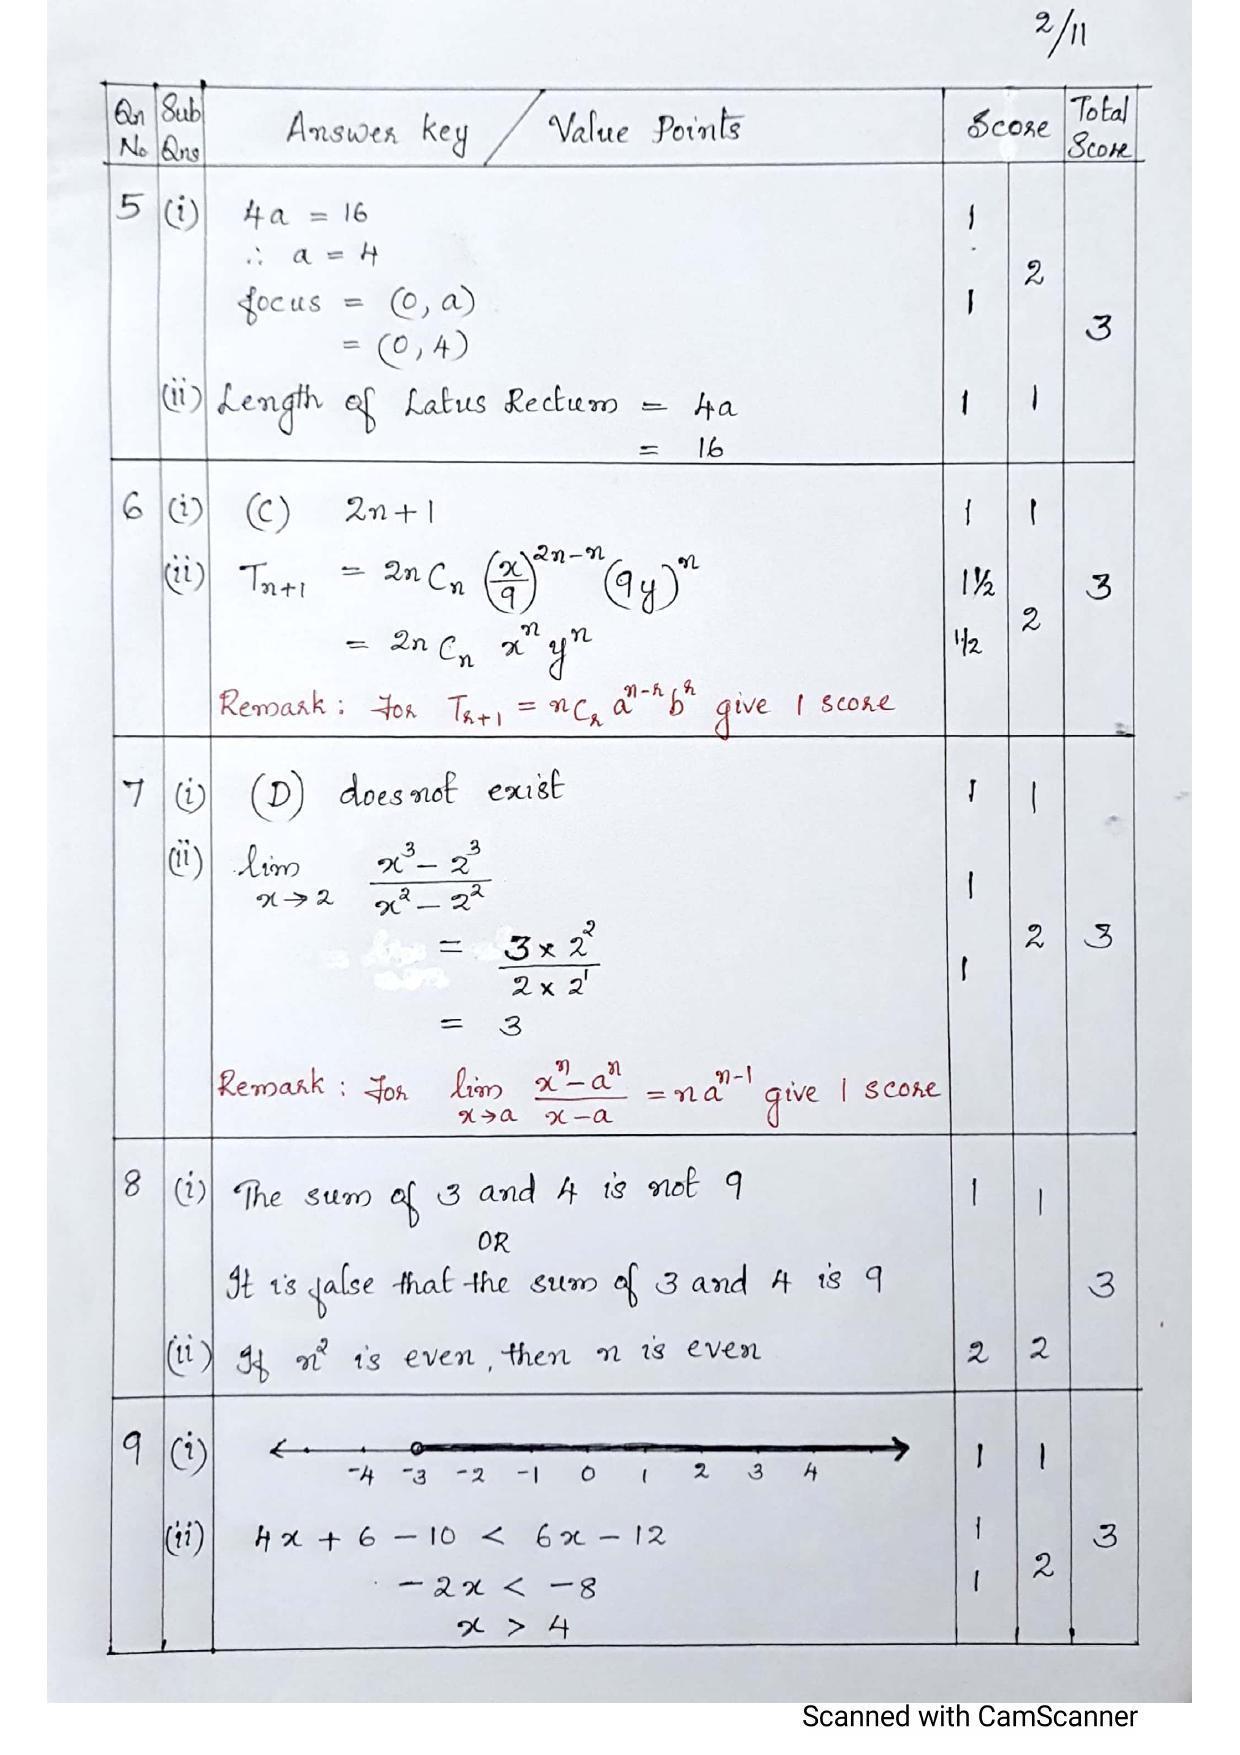 2/11
Qn No Sub Qns Answer key / Value Points Score Total Score
5 (i) 4a = 16 1
∴ a = 4 2
focus = (0, a) 1
= (0, 4) 3
(ii) Length of Latus Rectum = 4a 1 1
= 16
6 (i) (C) 2n+1 1 1
(ii) Tn+1 = 2nCn (x/9)^2n-n (9y)^n 1½ 3
= 2nCn x^n y^n ½ 2
Remark : For Tr+1 = nCr a^n-r b^r give 1 score
7 (i) (D) does not exist 1 1
(ii) lim x→2 x³ - 2³ / x² - 2² 1
= 3 × 2² / 2 × 2¹ 1 2 3
= 3
Remark : For lim x→a x^n - a^n / x - a = na^n-1 give 1 score
8 (i) The sum of 3 and 4 is not 9 1 1
OR
It is false that the sum of 3 and 4 is 9 3
(ii) If n² is even, then n is even 2 2
9 (i) -4 -3 -2 -1 0 1 2 3 4 1 1
(ii) 4x + 6 - 10 < 6x - 12 1 3
-2x < -8 1 2
x > 4
Scanned with CamScanner